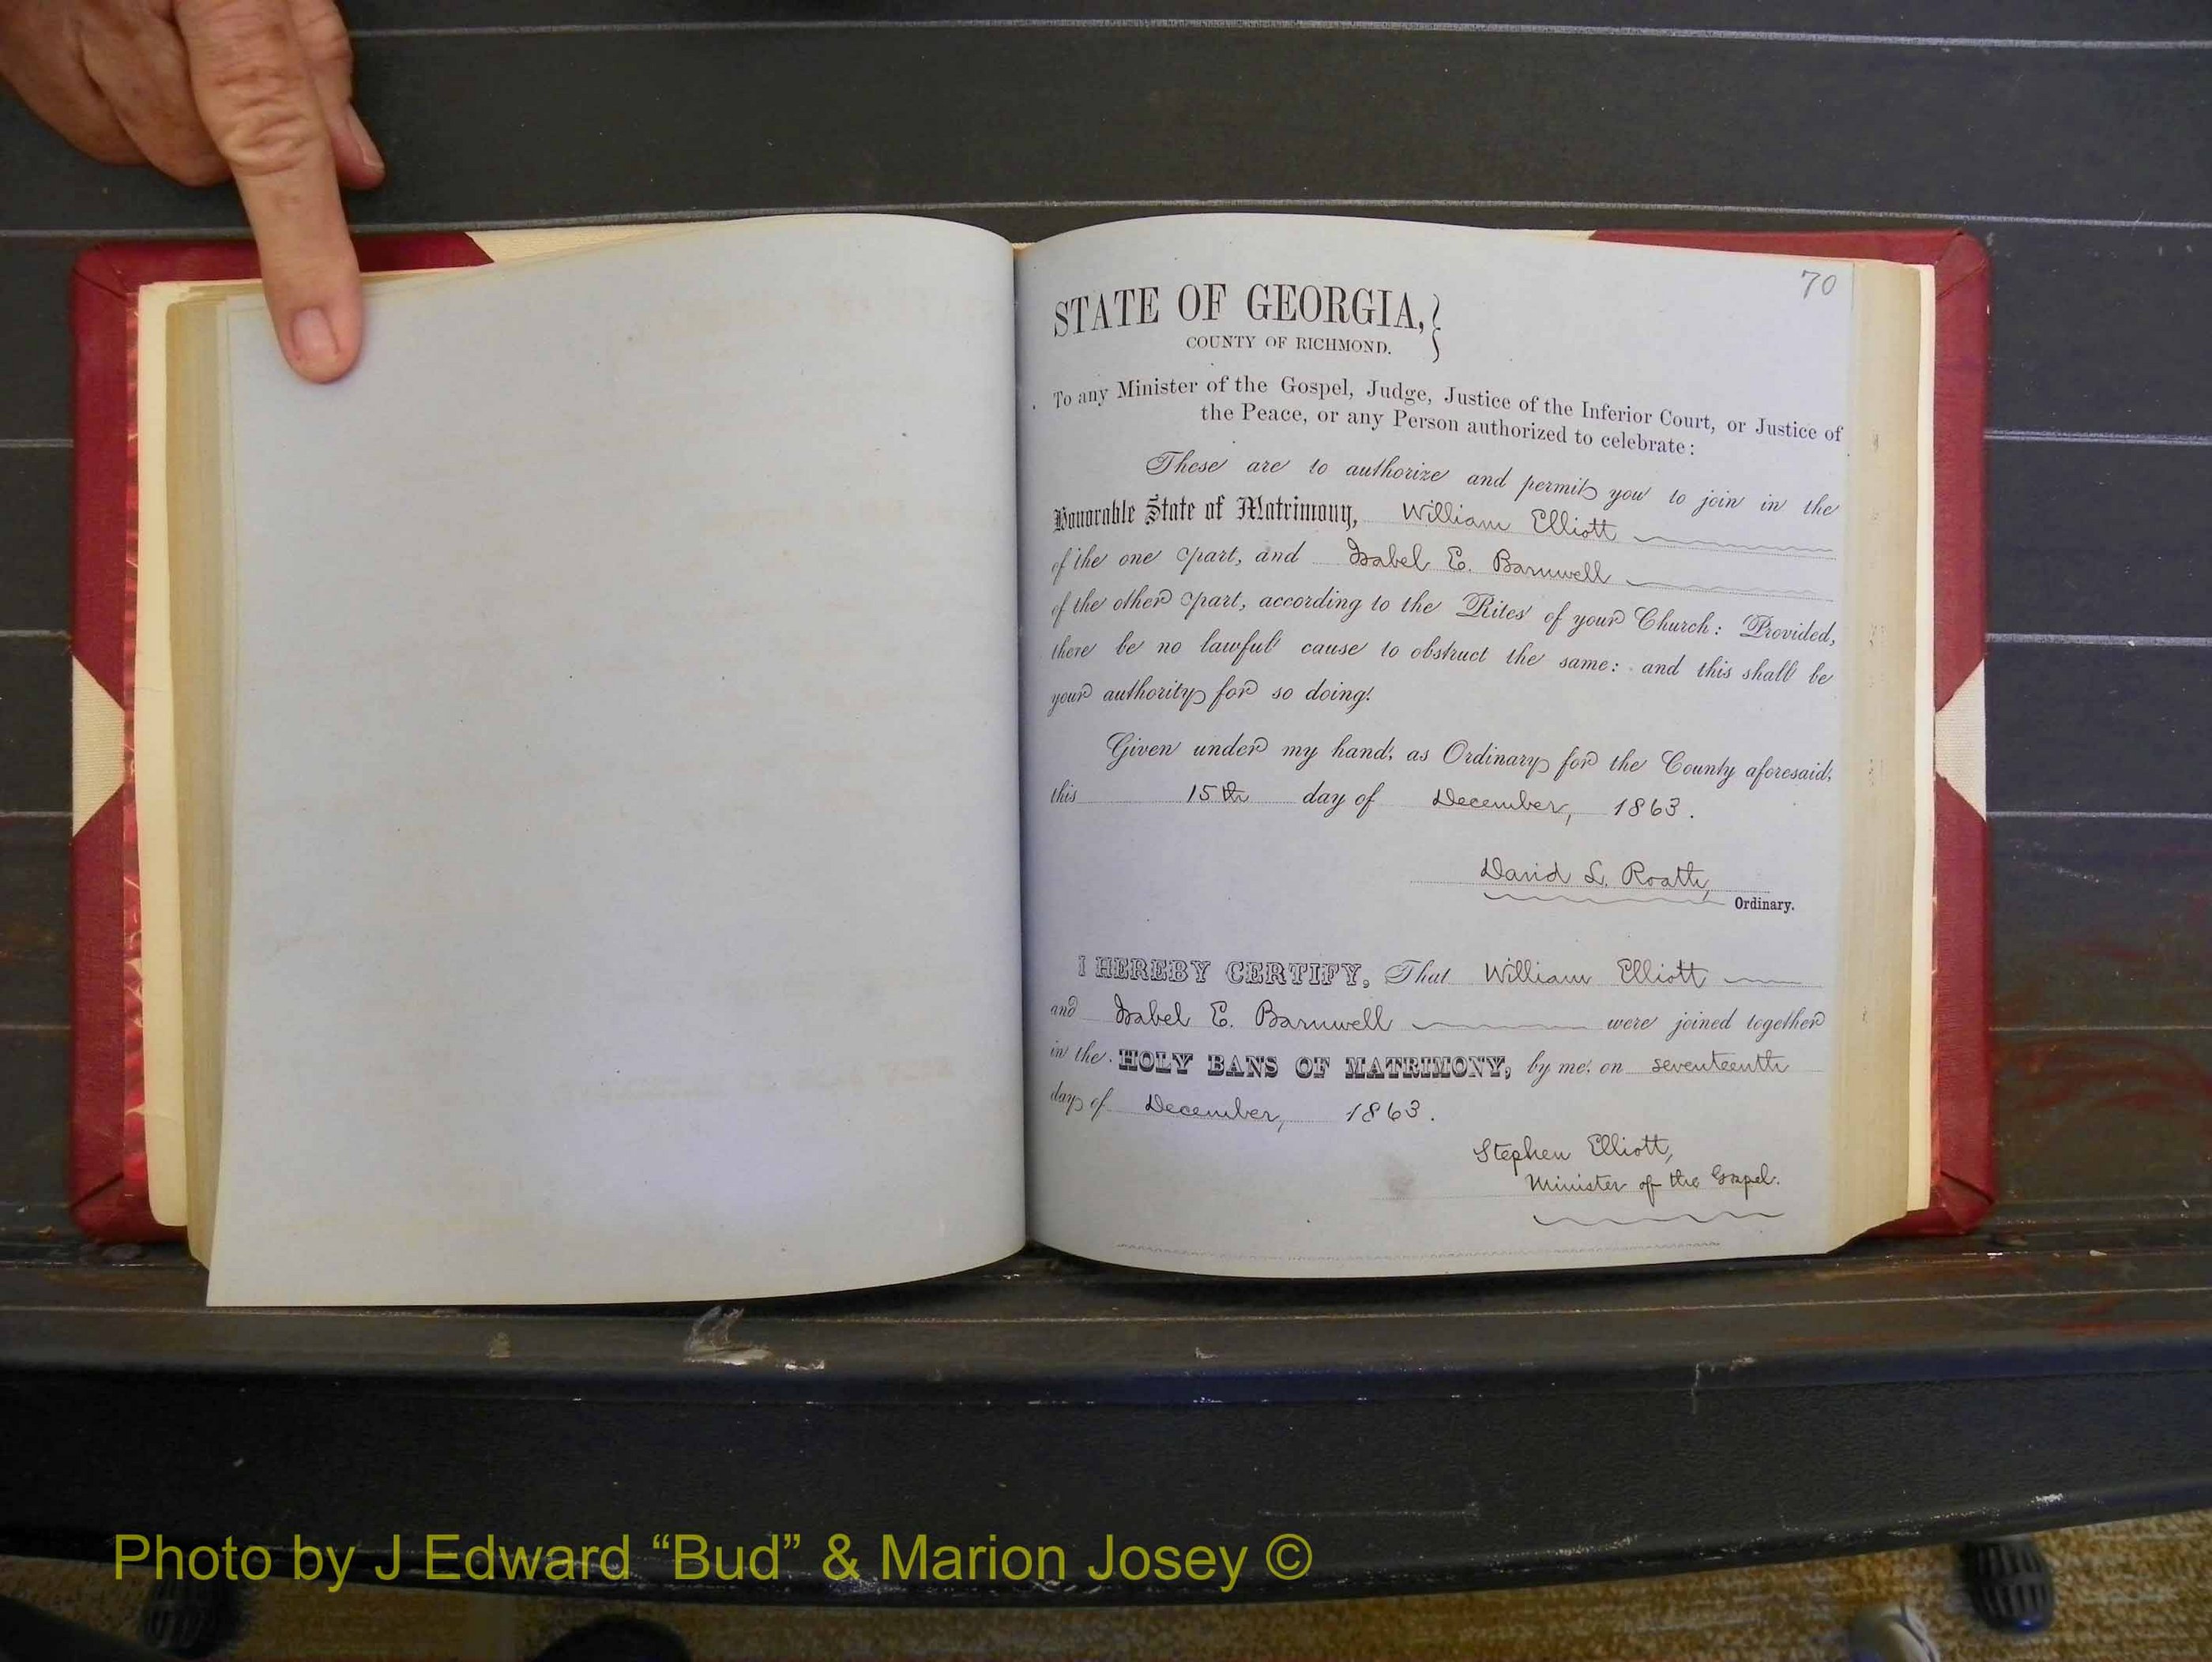 70
STATE OF GEORGIA,
COUNTY OF RICHMOND.
To any Minister of the Gospel, Judge, Justice of the Inferior Court, or Justice of
the Peace, or any Person authorized to celebrate:
These are to authorize and permit you to join in the
Honorable State of Matrimony, William Elliott
of the one part, and Isabel E. Barnwell
of the other part, according to the Rites of your Church: Provided,
there be no lawful cause to obstruct the same: and this shall be
your authority for so doing.
Given under my hand, as Ordinary for the County aforesaid,
this 15th day of December, 1863.
David L. Roath,
Ordinary.
I HEREBY CERTIFY, That William Elliott
and Isabel E. Barnwell were joined together
in the HOLY BANS OF MATRIMONY, by me, on seventeenth
day of December, 1863.
Stephen Elliott,
Minister of the Gospel.
Photo by J Edward “Bud” & Marion Josey ©